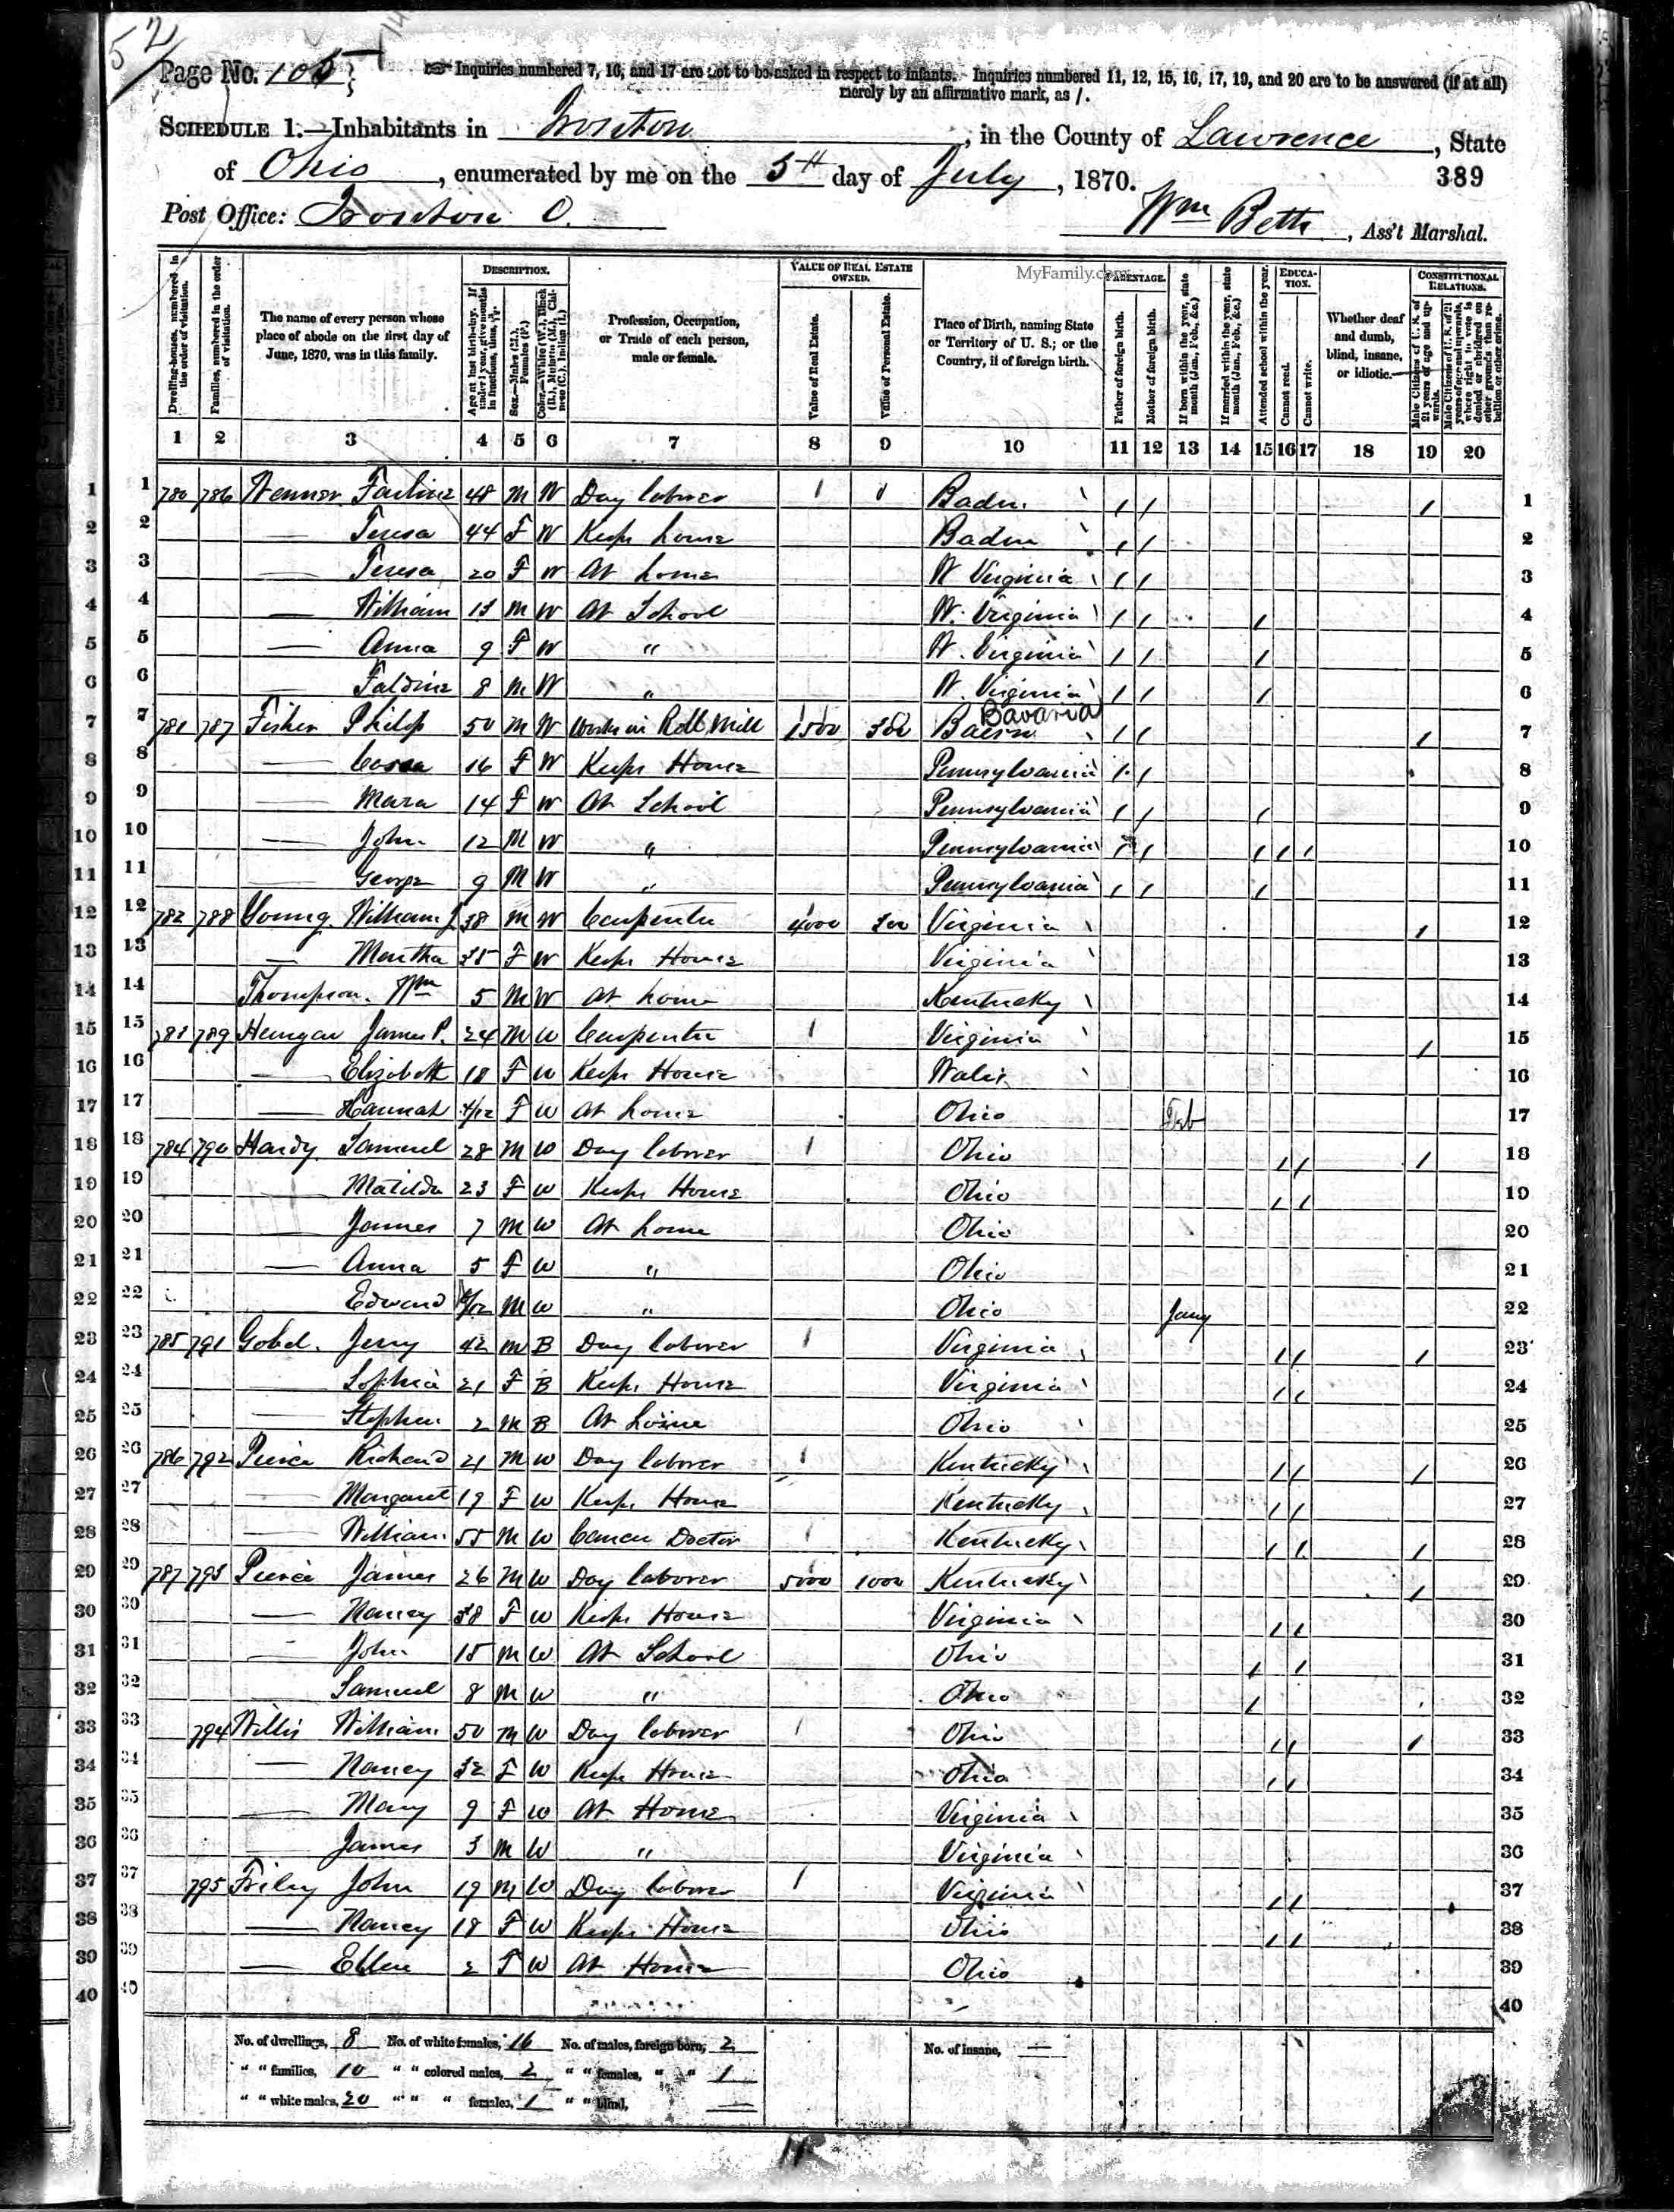 52
Page No. 105
☞ Inquiries numbered 7, 16, and 17 are not to be asked in respect to infants. Inquiries numbered 11, 12, 15, 16, 17, 19, and 20 are to be answered (if at all)
merely by an affirmative mark, as /.
SCHEDULE 1.—Inhabitants in Ironton, in the County of Lawrence, State
of Ohio, enumerated by me on the 5th day of July, 1870.
389
Post Office: Ironton O.
Wm Betts, Ass't Marshal.
MyFamily.com
Dwelling-houses, numbered in the order of visitation.
Families, numbered in the order of visitation.
The name of every person whose place of abode on the first day of June, 1870, was in this family.
DESCRIPTION.
Age at last birth-day. If under 1 year, give months in fractions, thus, 3/12.
Sex.—Males (M.), Females (F.)
Color.—White (W.), Black (B.), Mulatto (M.), Chinese (C.), Indian (I.)
Profession, Occupation, or Trade of each person, male or female.
VALUE OF REAL ESTATE OWNED.
Value of Real Estate.
Value of Personal Estate.
Place of Birth, naming State or Territory of U. S.; or the Country, if of foreign birth.
PARENTAGE.
Father of foreign birth.
Mother of foreign birth.
If born within the year, state month (Jan., Feb., &c.)
If married within the year, state month (Jan., Feb., &c.)
Attended school within the year.
EDUCATION.
Cannot read.
Cannot write.
Whether deaf and dumb, blind, insane, or idiotic.
CONSTITUTIONAL RELATIONS.
Male Citizens of U. S. of 21 years of age and upwards.
Male Citizens of U. S. of 21 years of age and upwards, where right to vote is denied or abridged on other grounds than rebellion or other crime.
1 2 3 4 5 6 7 8 9 10 11 12 13 14 15 16 17 18 19 20
1 780 786 Wenner 48 M W Day laborer Baden / / / 1
2 — Teresa 44 F W Keeps house Baden / / 2
3 — Teresa 20 F W At home W Virginia / / 3
4 — William 13 M W At School W. Virginia / / / 4
5 — Anna 9 F W " W. Virginia / / / 5
6 — 8 M W " W. Virginia / / / 6
7 781 787 Fisher Philip 50 M W Works in Roll Mill 1500 300 Bavaria / / / 7
8 — 16 F W Keeps House Pennsylvania / / 8
9 — Mara 14 F W At School Pennsylvania / / / 9
10 — John 12 M W " Pennsylvania / / / / / 10
11 — George 9 M W " Pennsylvania / / / 11
12 782 788 Young William J 38 M W Carpenter 4000 300 Virginia / 12
13 — Martha 35 F W Keeps House Virginia 13
14 Thompson Wm 5 M W At home Kentucky 14
15 783 789 James P. 24 M W Carpenter / Virginia / 15
16 — Elizabeth 18 F W Keeps House Wales 16
17 — Hannah 4/12 F W At home Ohio Feb 17
18 784 790 Hardy Samuel 28 M W Day laborer / Ohio / / / 18
19 — Matilda 23 F W Keeps House Ohio / / 19
20 — James 7 M W At home Ohio 20
21 — Anna 5 F W " Ohio 21
22 Edward M W " Ohio Jany 22
23 785 791 Gobel Jerry 42 M B Day laborer / Virginia / / / 23
24 — Sophia 21 F B Keeps House Virginia / / 24
25 — Stephen 2 M B At home Ohio 25
26 786 792 Pierce Richard 21 M W Day laborer / Kentucky / / / 26
27 — Margaret 19 F W Keeps House Kentucky / / 27
28 — William 55 M W Cancer Doctor / Kentucky / / / 28
29 787 793 Pierce James 26 M W Day laborer 5000 1000 Kentucky / 29
30 — Nancy 38 F W Keeps House Virginia / / 30
31 — John 15 M W At School Ohio / / 31
32 Samuel 8 M W " Ohio / 32
33 794 Willis William 50 M W Day laborer / Ohio / / / 33
34 — Nancy 32 F W Keeps House Ohio / / 34
35 — Mary 9 F W At Home Virginia 35
36 — James 3 M W " Virginia 36
37 795 Friley John 19 M W Day laborer / Virginia / / 37
38 — Nancy 18 F W Keeps House Ohio / / 38
39 — Ellen 2 F W At Home Ohio 39
40 40
No. of dwellings, 8 No. of white females, 16 No. of males, foreign born, 2 No. of insane, —
" " families, 10 " " colored males, 2 " " females, " " 1
" " white males, 20 " " " females, 1 " " blind, —